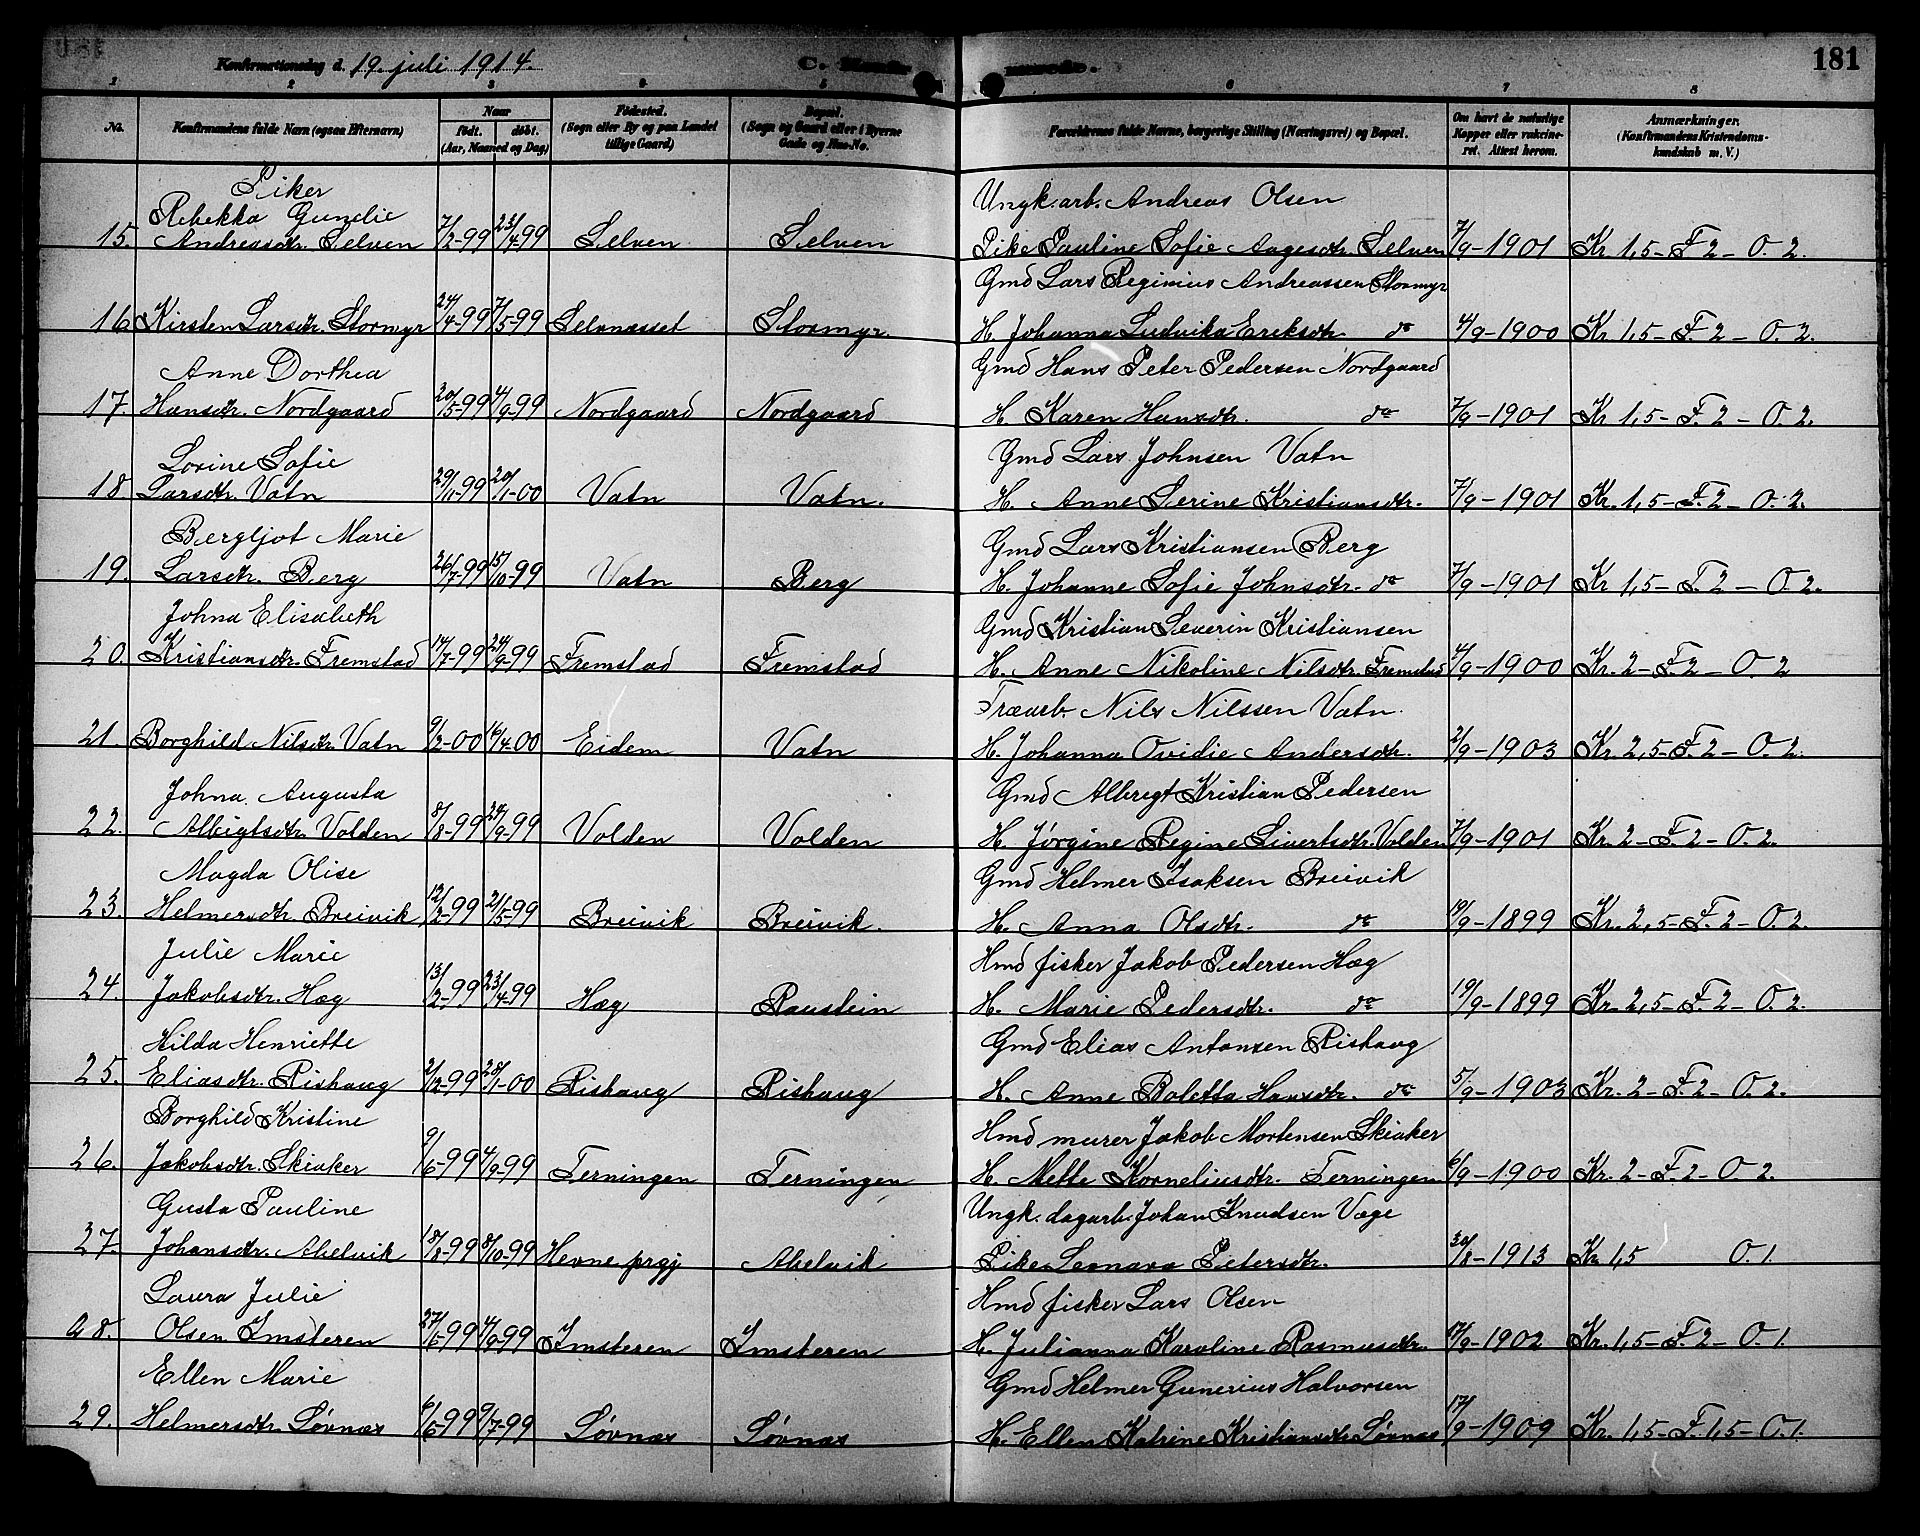 Konfirmationsdag d. 19. juli 1914.
C. Konfir merede.
181
1 2 3 4 5 6 7 8
No.
Konfirmandens fulde Navn (ogsaa Efternavn)
Naar født. døbt. (Aar, Maaned og Dag)
Fødested. (Sogn eller By og paa Landet tillige Gaard)
Bopæl. (Sogn og Gaard eller i Byerne Gade og Hus-No.
Forældrenes fulde Navne, borgerlige Stilling (Næringsvei) og Bopæl.
Om havt de naturlige Kopper eller vakcineret. Attest herom.
Anmærkninger. (Konfirmandens Kristendomskundskab m. V.)
Piker
Rebekka Gundie Ungk. arb. Andreas Olsen
15. Andreasdtr. Selven 7/2-99 23/4-99 Selven Selven Pike Pauline Sofie Aagesdtr. Selven 7/9-1901 Kr. 1,5- F. 2- O. 2.
Gmd Lars Reginius Andreassen Stormyr
16 Kirsten Larsdtr. Stormyr 24/4-99 7/5-99 Selvnesset Stormyr. H. Johanna Ludvika Eriksdtr. do 4/9-1900 Kr. 1,5- F. 2- O. 2.
Anne Dorthea Gmd Hans Peter Pedersen Nordgaard
17. Hansdtr. Nordgaard 30/5-99 4/9-99 Nordgaard Nordgaard H. Karen Hansdtr. do 7/9-1901 Kr. 1,5- F. 2- O. 2.
Lovine Sofie Gmd Lars Johnsen Vatn
18 Larsdtr. Vatn 29/11-99 20/1-00 Vatn Vatn. H. Anne Serine Kristiansdtr. 7/9-1901 Kr. 1,5- F. 2- O. 2.
Bergljot Marie Gmd Lars Kristiansen Berg
19. Larsdtr. Berg 26/7-99 15/10-99 Vatn Berg H. Johanne Sofie Johnsdtr. do 7/9-1901 Kr. 1,5- F. 2- O. 2.
Johna Elisabeth Gmd Kristian Severin Kristiansen
20. Kristiansdtr. Fremstad 14/7-99 24/9-99 Fremstad Fremstad H. Anne Nikoline Nilsdtr. Fremstad 4/9-1900 Kr. 2- F. 2- O. 2
Træarb. Nils Nilssen Vatn.
21. Borghild Nilsdtr. Vatn 9/2-00 16/4-00 Eidem Vatn H. Johanna Ovidie Andersdtr. 2/9-1903 Kr. 2,5- F. 2- O. 2.
Johna Augusta Gmd Albregt Kristian Pedersen
22. Albrigtsdtr. Volden 8/8-99 24/9-99 Volden Volden H. Jørgine Regine Sivertsdtr. Volden 7/9-1901 Kr. 2- F. 2- O. 2.
Magda Olise Gmd Helmer Isaksen Breivik
23. Helmersdtr. Breivik 12/2-99 21/5-99 Breivik Breivik. H. Anna Olsdtr. do 19/9-1899 Kr. 2,5- F. 2- O. 2.
Julie Marie Hmd fisker Jakob Pedersen Hæg
24. Jakobsdtr. Hæg 13/2-99 23/4-99 Hæg Raustein H. Marie Pedersdtr. do 19/9-1899 Kr. 2,5- F. 2- O. 2.
Hilda Henriette Gmd Elias Antonsen Rishaug
25. Eliasdtr. Rishaug 2/12-99 28/1-00 Rishaug Rishaug H. Anne Boletta Hansdtr. do 5/9-1903 Kr. 2- F. 2- O. 2.
Borghild Kristine Hmd murer Jakob Mortensen Skiaker
26. Jakobsdtr. Skiaker 9/6-99 4/9-99 Terningen Terningen H. Mette Korneliusdtr. Terningen 6/9-1900 Kr. 2- F. 2- O. 2.
Gusta Pauline Ungk. dagarb. Johan Knudsen Væge
27. Johansdtr. Abelvik 18/8-99 8/10-99 Hevne prgj Abelvik Pike Leonara Petersdtr. 30/8-1913 Kr. 1,5 O. 1.
Laura Julie Hmd fisker Lars Olsen
28. Olsen Imsteren 27/6-99 4/9-99 Imsteren Imsteren H. Julianna Karoline Rasmusdtr. 17/9-1902 Kr. 1,5- F. 2- O. 1.
Ellen Marie Gmd Helmer Gunerius Halvorsen
29. Helmersdtr. Søvnæs 6/6-99 9/7-99 Søvnæs Søvnæs H. Ellen Katrine Kristiansdtr. Søvnæs 17/9-1909 Kr. 1,5- F. 1,5- O. 1.